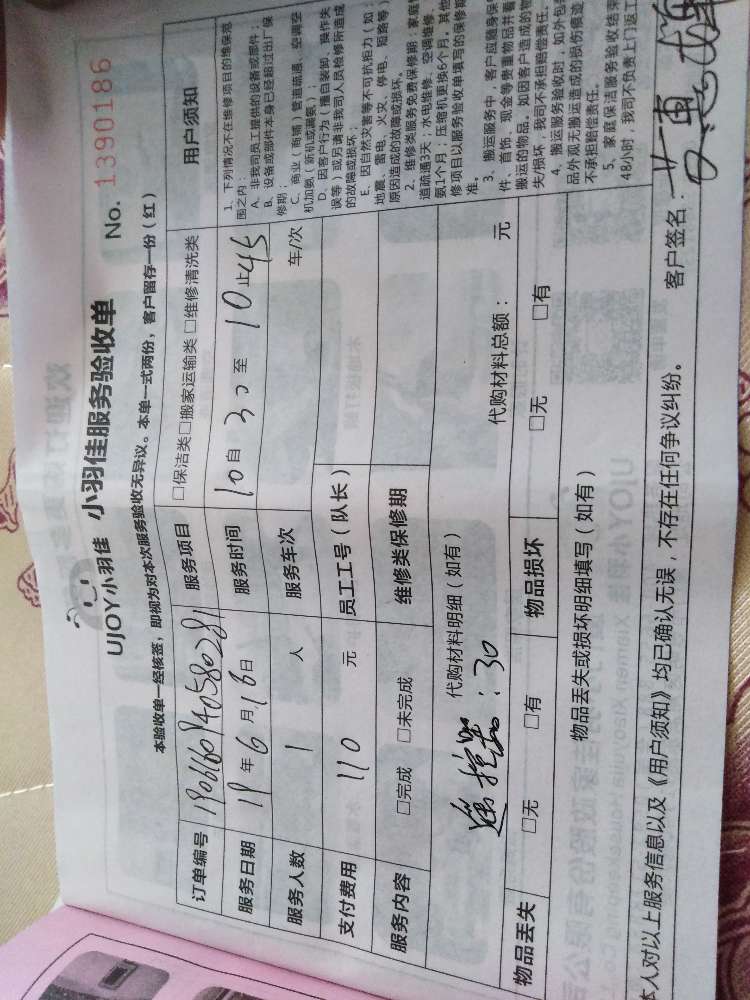 UJOY小羽佳 小羽佳服务验收单
No. 1390186
本验收单一经核签，即视为对本次服务验收无异议。本单一式两份，客户留存一份（红）
订单编号
服务项目 □保洁类□搬家运输类 □维修清洗类
服务日期 19 年 6 月 16 日 服务时间 10 自 30 至 10 止 45
服务人数 1 人 服务车次 车/次
支付费用 110 元 员工工号（队长）
服务内容 □完成 □未完成 维修类保修期
代购材料明细（如有） 代购材料总额： 元
遥控器：30
物品丢失 □无 □有 物品损坏 □无 □有
物品丢失或损坏明细填写（如有）
用户须知
1、下列情况不在维修项目的维保范
围之内：
A、非我司员工提供的设备或部件；
B、设备或部件本身已经超过出厂保
修期；
C、商业（商铺）管道疏通、空调空
机加氨（新机或漏氨）；
D、因客户行为（擅自装卸、操作失
误等）或另请非我司人员检修所造成
的故障或损坏；
E、因自然灾害等不可抗力（如：
地震、雷电、火灾、停电、短路等）
原因造成的故障或损坏。
2、维修类服务免费保修期：家庭
道疏通3天；水电维修、空调维修、
氨1个月；压缩机更换6个月。其他
修项目以服务验收单填写的保修期
准。
3、搬运服务中，客户应随身保
件、首饰、现金等贵重物品并看
搬运的物品。如因客户造成的物
失/损坏，我司不承担赔偿责任。
4、搬运服务验收时，如外包装
品外观无搬运造成的损伤痕迹
不承担赔偿责任。
5、家庭保洁服务验收结束
48小时，我司不负责上门返工
本人对以上服务信息以及《用户须知》均已确认无误，不存在任何争议纠纷。 客户签名：